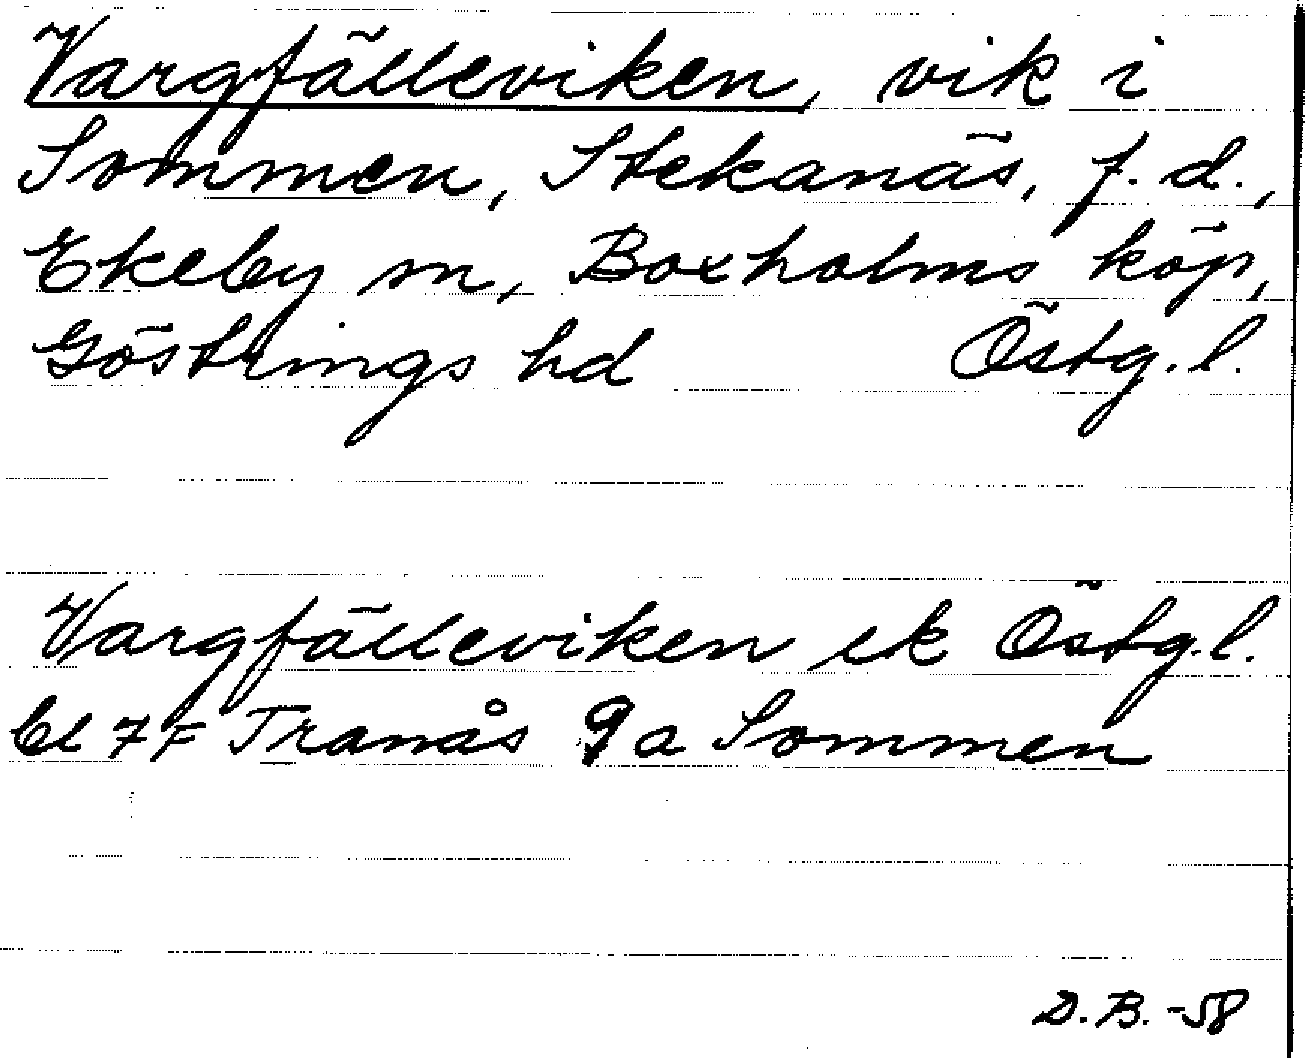 Vargfälleviken, vik i
Sommen, Stekanäs, f.d.,
Ekeby sn, Boxholms köp,
Göstrings hd Östg.l.
Vargfälleviken ek Östg.l.
bl 7F Tranås 9a Sommen
D.B. -58